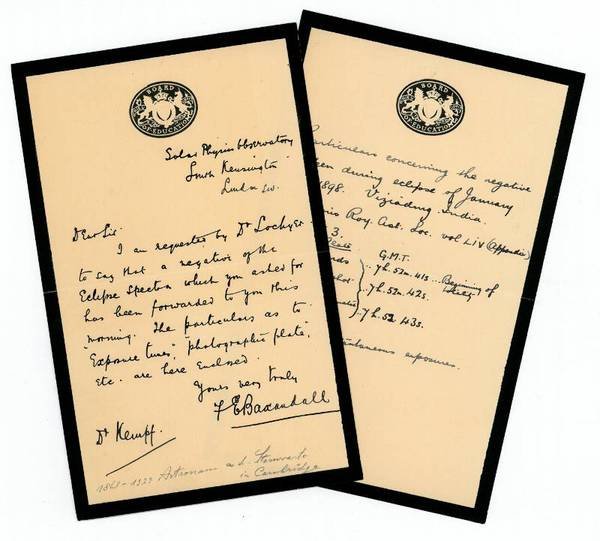 BOARD
OF EDUCATION
Solar Physics Observatory
South Kensington
London SW.
Dear Sir
I am requested by Dr Lockyer
to say that a negative of the
Eclipse Spectra which you asked for
has been forwarded to you this
morning. The particulars as to
"Exposure times", "photographic plate",
etc. are here enclosed.
Yours very truly
F E Baxandall
Dr Kempf.
1868-1929 Astronom a. d. Sternwarte
in Cambridge
BOARD
OF EDUCATION
Particulars concerning the negative
during eclipse of January
1898. Viziadurg, India.
Roy. Ast. Soc. vol LIV (Appendix)
3.
G.M.T.
7h. 52m. 41s... Beginning of
7h. 52m. 42s.
7h. 52 43s.
exposures.